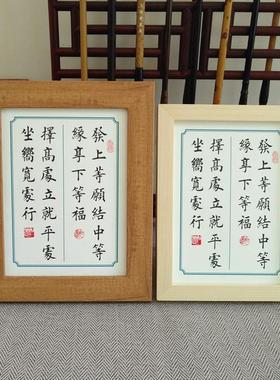 發上等願結中等
緣享下等福
擇高處立就平處
坐嚮寬處行
發上等願結中等
緣享下等福
擇高處立就平處
坐嚮寬處行